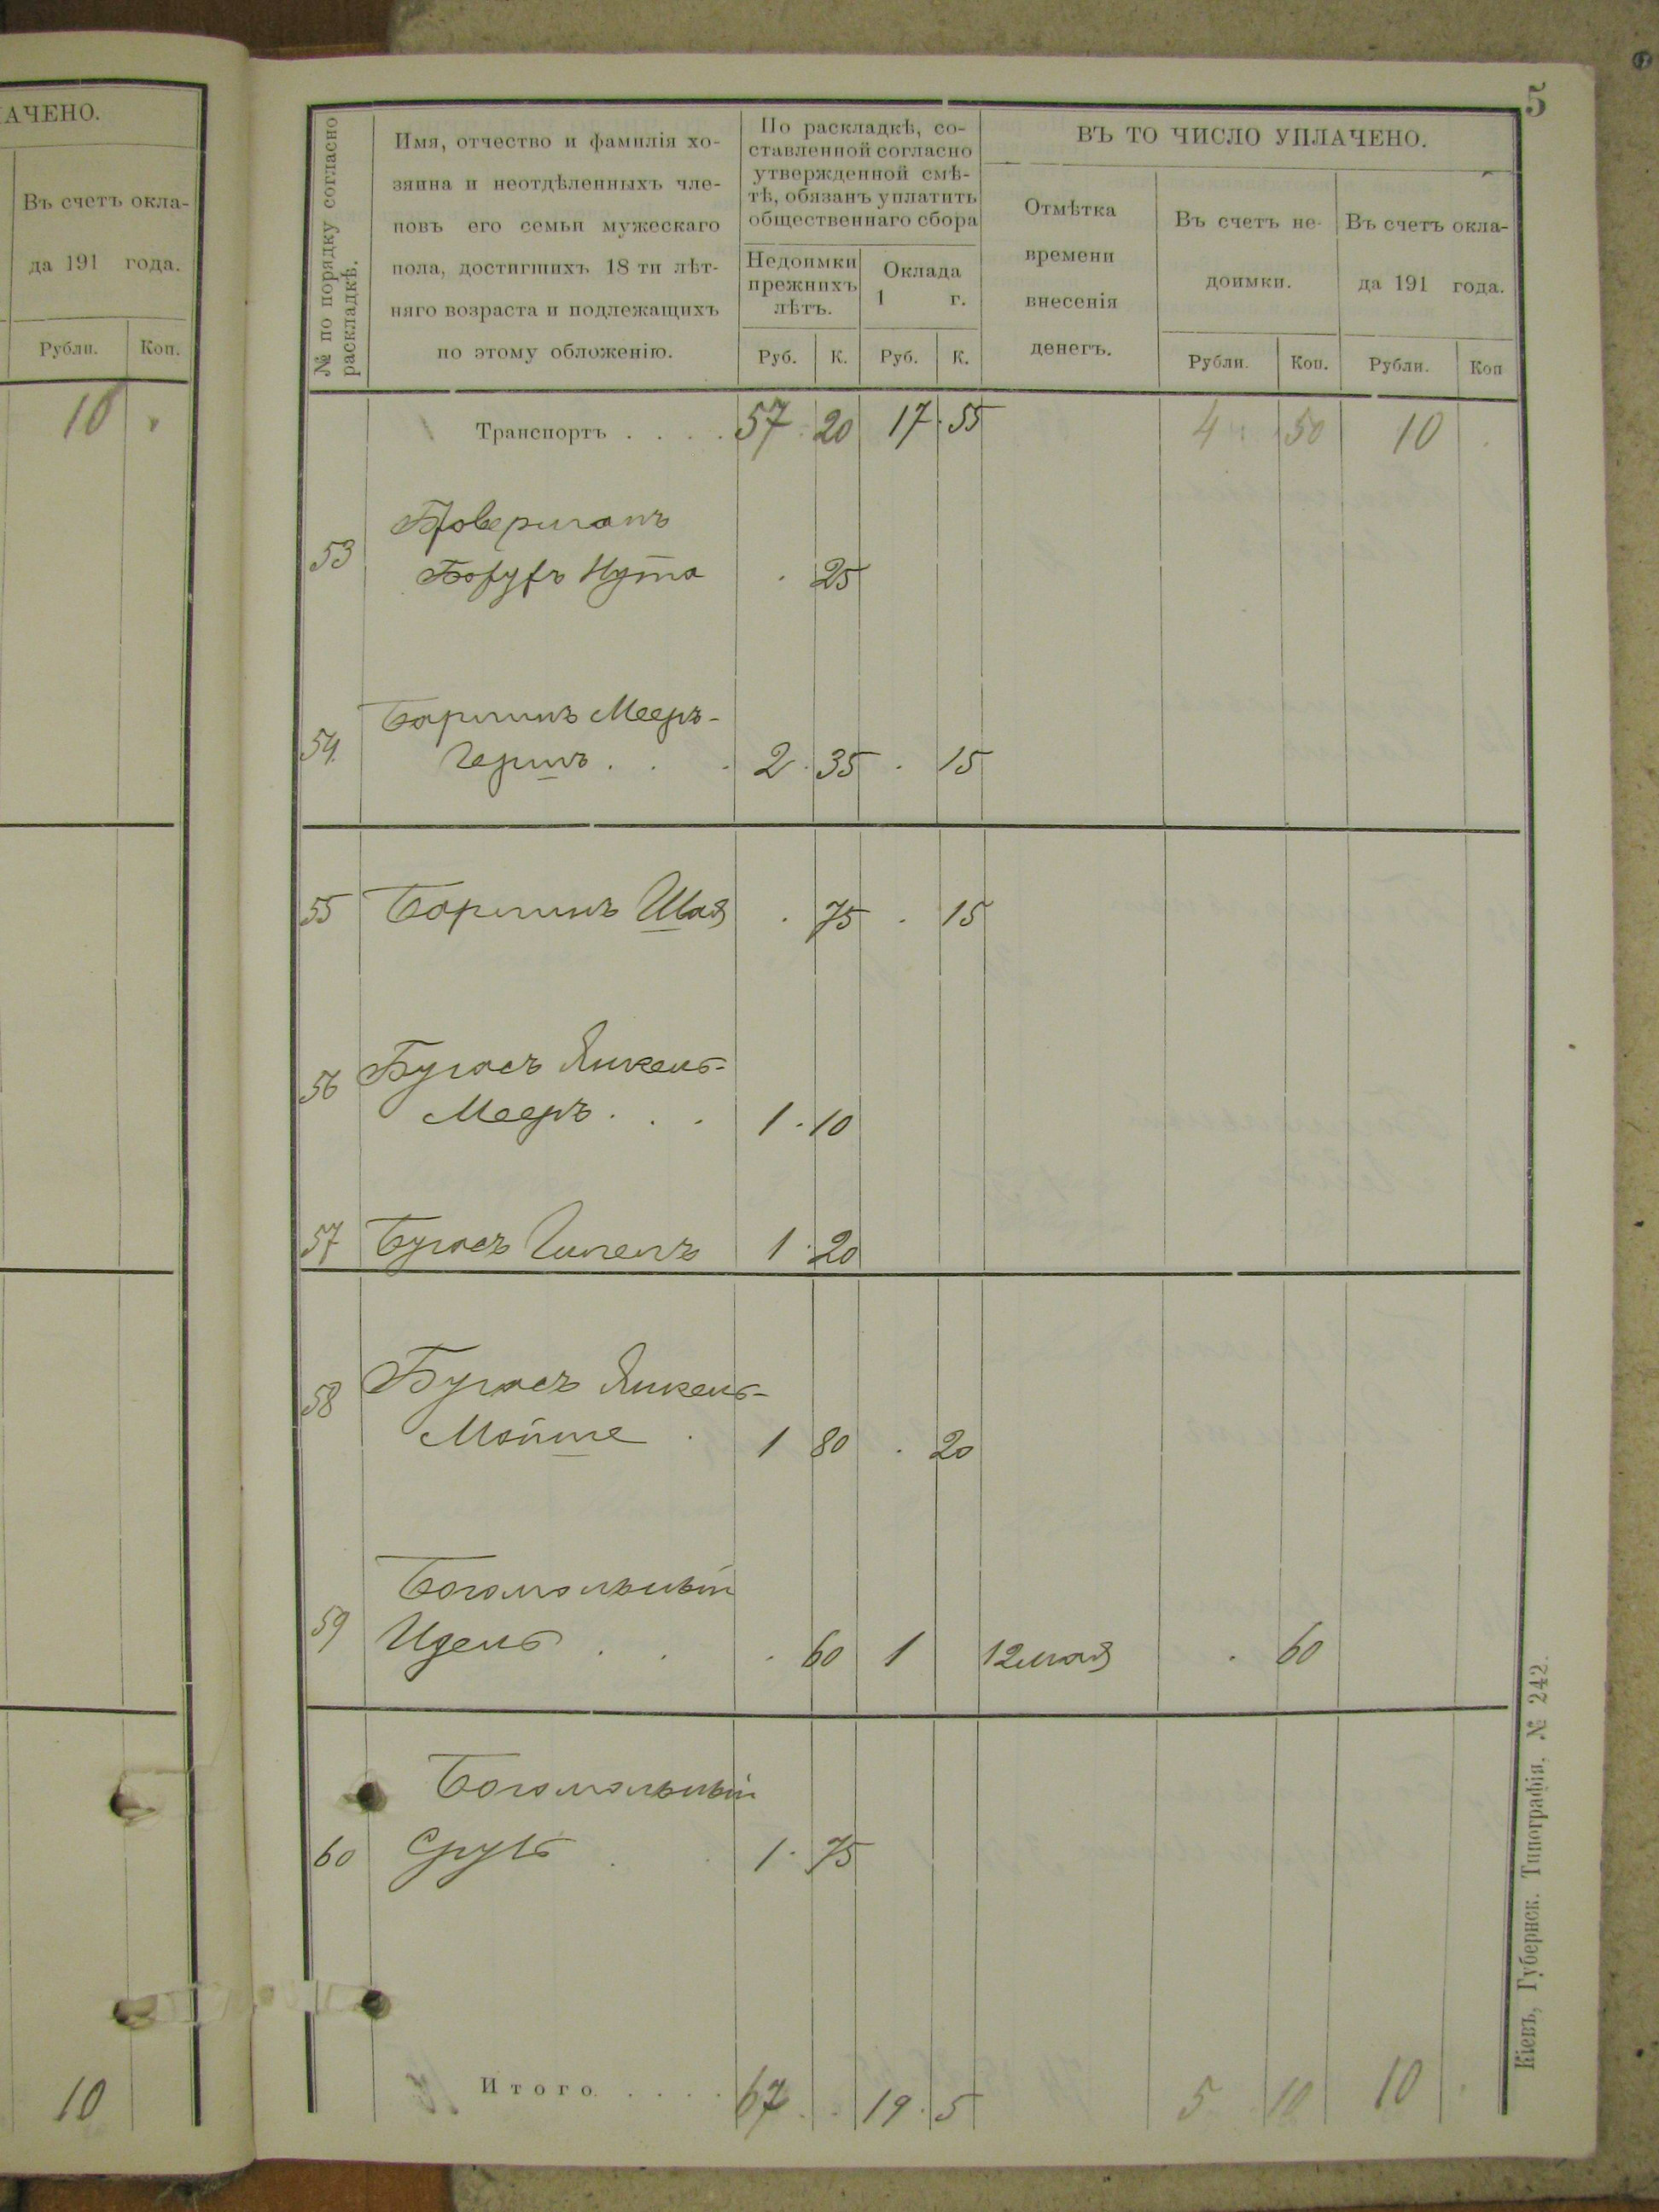 АЧЕНО.
Въ счетъ окла-
да 191 года.
Рубли. Коп.
10
10
5
№ по порядку согласно
раскладкѣ.
Имя, отчество и фамилія хо-
зяина и неотдѣленныхъ чле-
новъ его семьи мужескаго
пола, достигшихъ 18 ти лѣт-
няго возраста и подлежащихъ
по этому обложенію.
По раскладкѣ, со-
ставленной согласно
утвержденной смѣ-
тѣ, обязанъ уплатить
общественнаго сбора
Недоимки
прежнихъ
лѣтъ.
Оклада
1 г.
Руб. К. Руб. К.
ВЪ ТО ЧИСЛО УПЛАЧЕНО.
Отмѣтка
времени
внесенія
денегъ.
Въ счетъ не-
доимки.
Въ счетъ окла-
да 191 года.
Рубли. Коп. Рубли. Коп
Транспортъ . . . . 57 20 17 55 4 50 10
53 Борухъ Нута 25
54. Бортникъ Мееръ-
Гершъ . . . 2 35 . 15
55 Бортникъ Шая . 75 . 15
56 Бугасъ Янкель-
Мееръ . . . 1 10
57 Бугасъ 1 20
58 Бугасъ Янкель-
Мойше . 1 80 . 20
59 Богомольный
Идель . . . 60 1 12 мая . 60
Богомольный
60 Сруль 1 75
Итого . . . . . 67 . 19 5 5 10 10
Кіевъ, Губернск. Типографія. № 242.